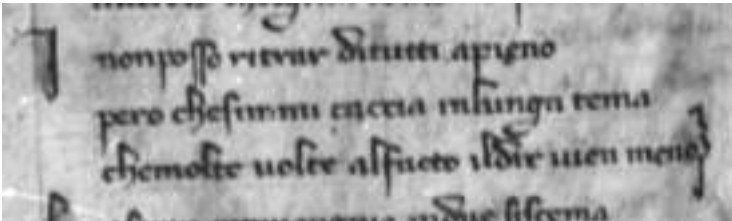 I nonposso ritrar ditutti apieno
pero chesimmi caccia illungo tema
chemolte uolte alfacto ildir uien meno
indue siscema